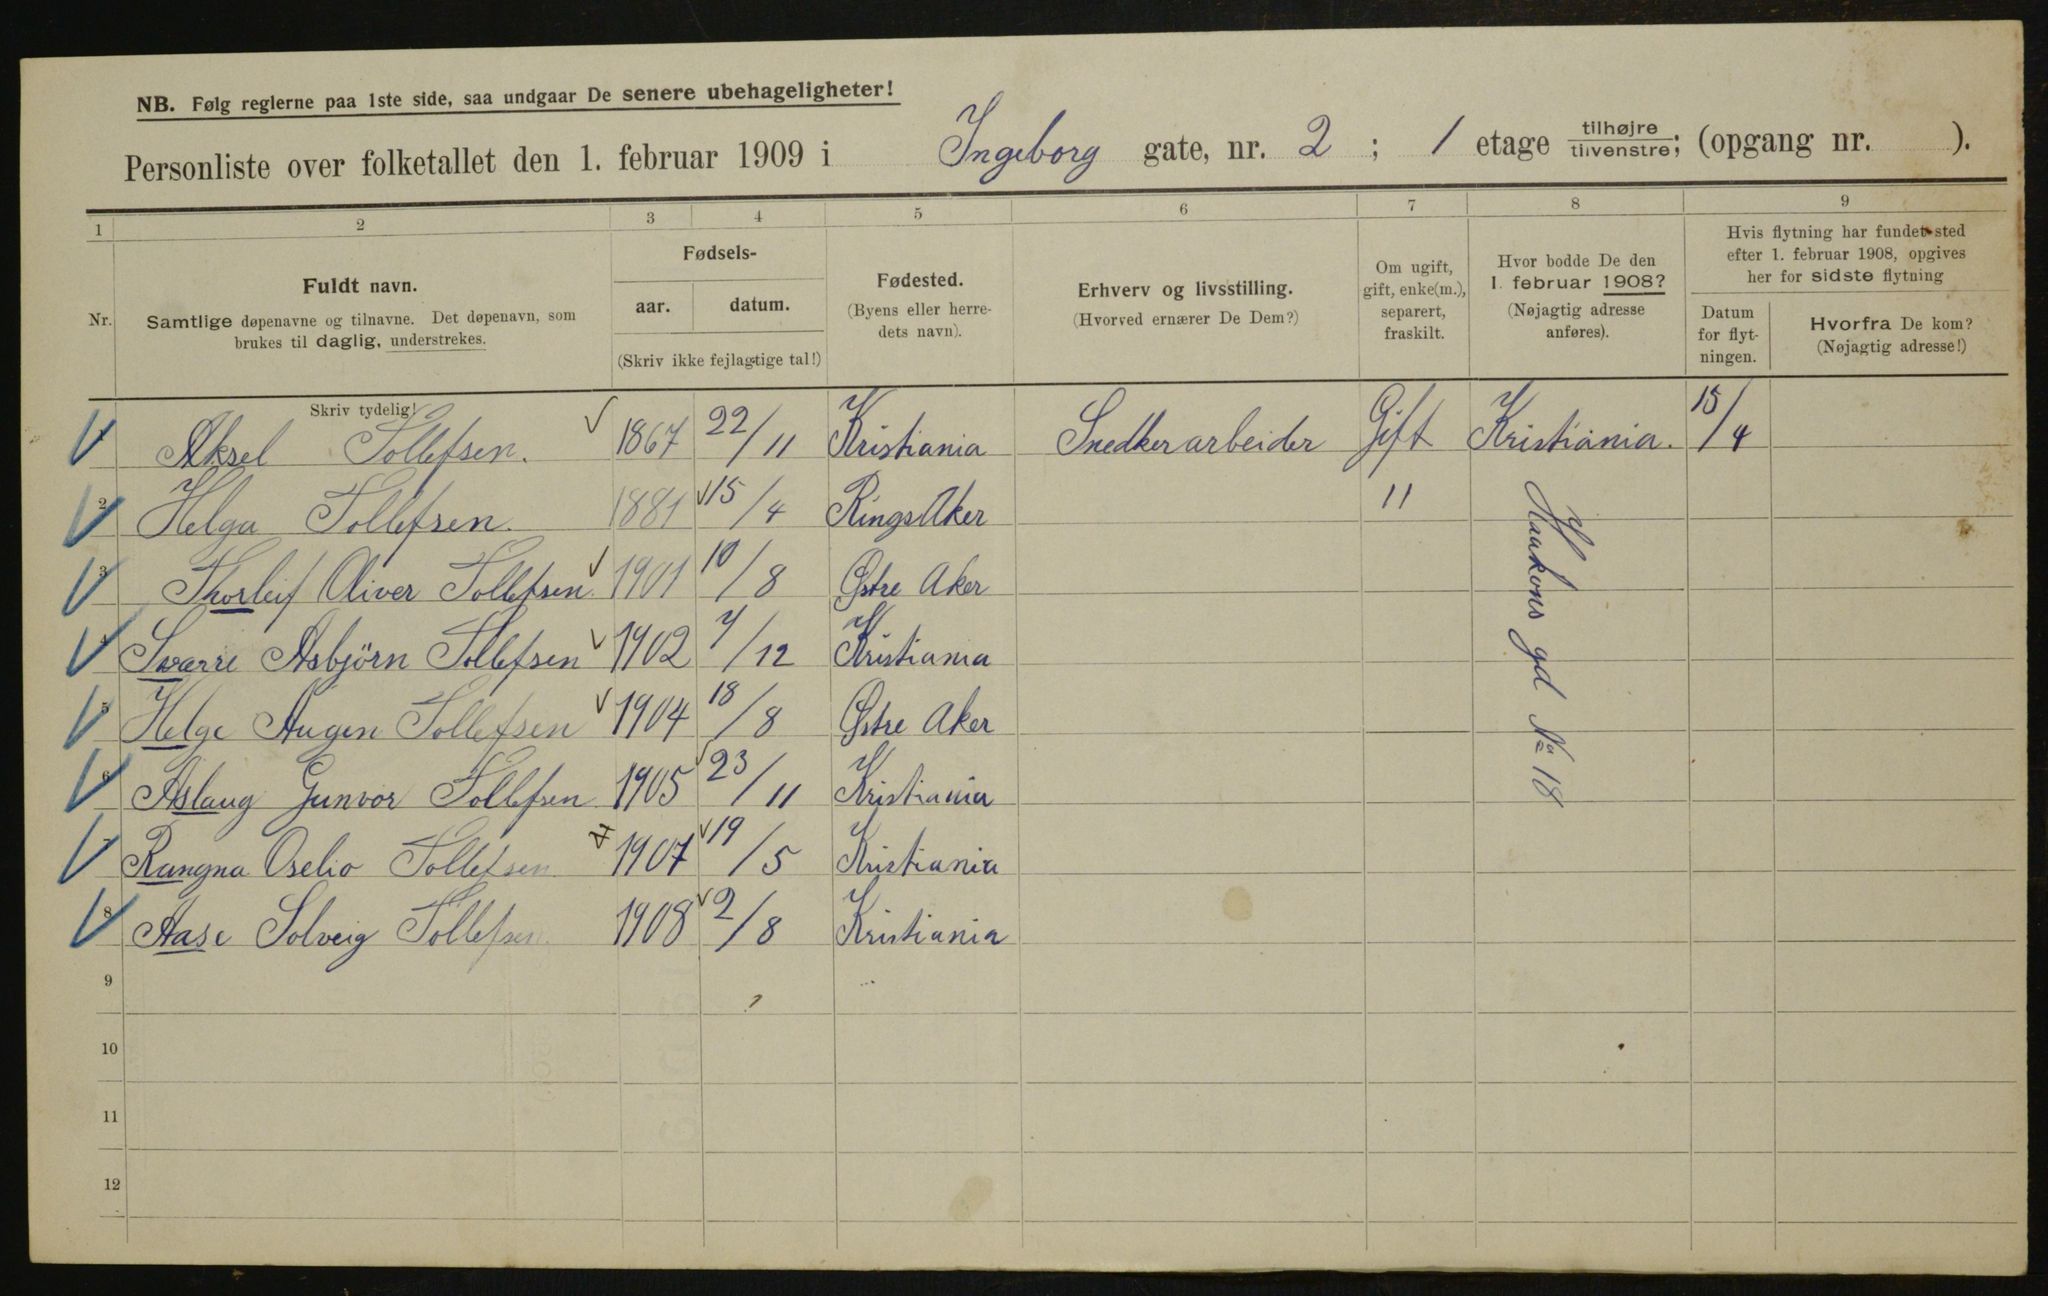 NB. Følg reglerne paa 1ste side, saa undgaar De senere ubehageligheter!
Personliste over folketallet den 1. februar 1909 i Ingeborg gate, nr. 2 ; 1 etage tilhøjre tilvenstre; (opgang nr. ).
1 2 3 4 5 6 7 8 9
Nr.
Fuldt navn.
Samtlige døpenavne og tilnavne. Det døpenavn, som
brukes til daglig, understrekes.
Skriv tydelig!
Fødsels-
aar. datum.
(Skriv ikke fejlagtige tal!)
Fødested.
(Byens eller herre-
dets navn).
Erhverv og livsstilling.
(Hvorved ernærer De Dem?)
Om ugift,
gift, enke(m.),
separert,
fraskilt.
Hvor bodde De den
1. februar 1908?
(Nøjagtig adresse
anføres).
Hvis flytning har fundet sted
efter 1. februar 1908, opgives
her for sidste flytning
Datum
for flyt-
ningen.
Hvorfra De kom?
(Nøjagtig adresse!)
Aksel Tollefsen. 1867 22/11 Kristiania Snedkerarbeider Gift Kristiania. 15/4
2 Helga Tollefsen. 1881 15/4 RingsAker 11
3 Thorleif Oliver Tollefsen. 1901 10/8 Østre Aker
4 Sværre Asbjörn Tollefsen 1902 7/12 Kristiania
5 Helge Augen Tollefsen 1904 18/8 Østre Aker
6 Aslaug Gunvor Tollefsen 1905 23/11 Kristiania
7 Rangna Oselio Tollefsen 1907 19/5 Kristiania
8 Aase Solveig Tollefsen. 1908 2/8 Kristiania
Haakons gd No 18
9
10
11
12